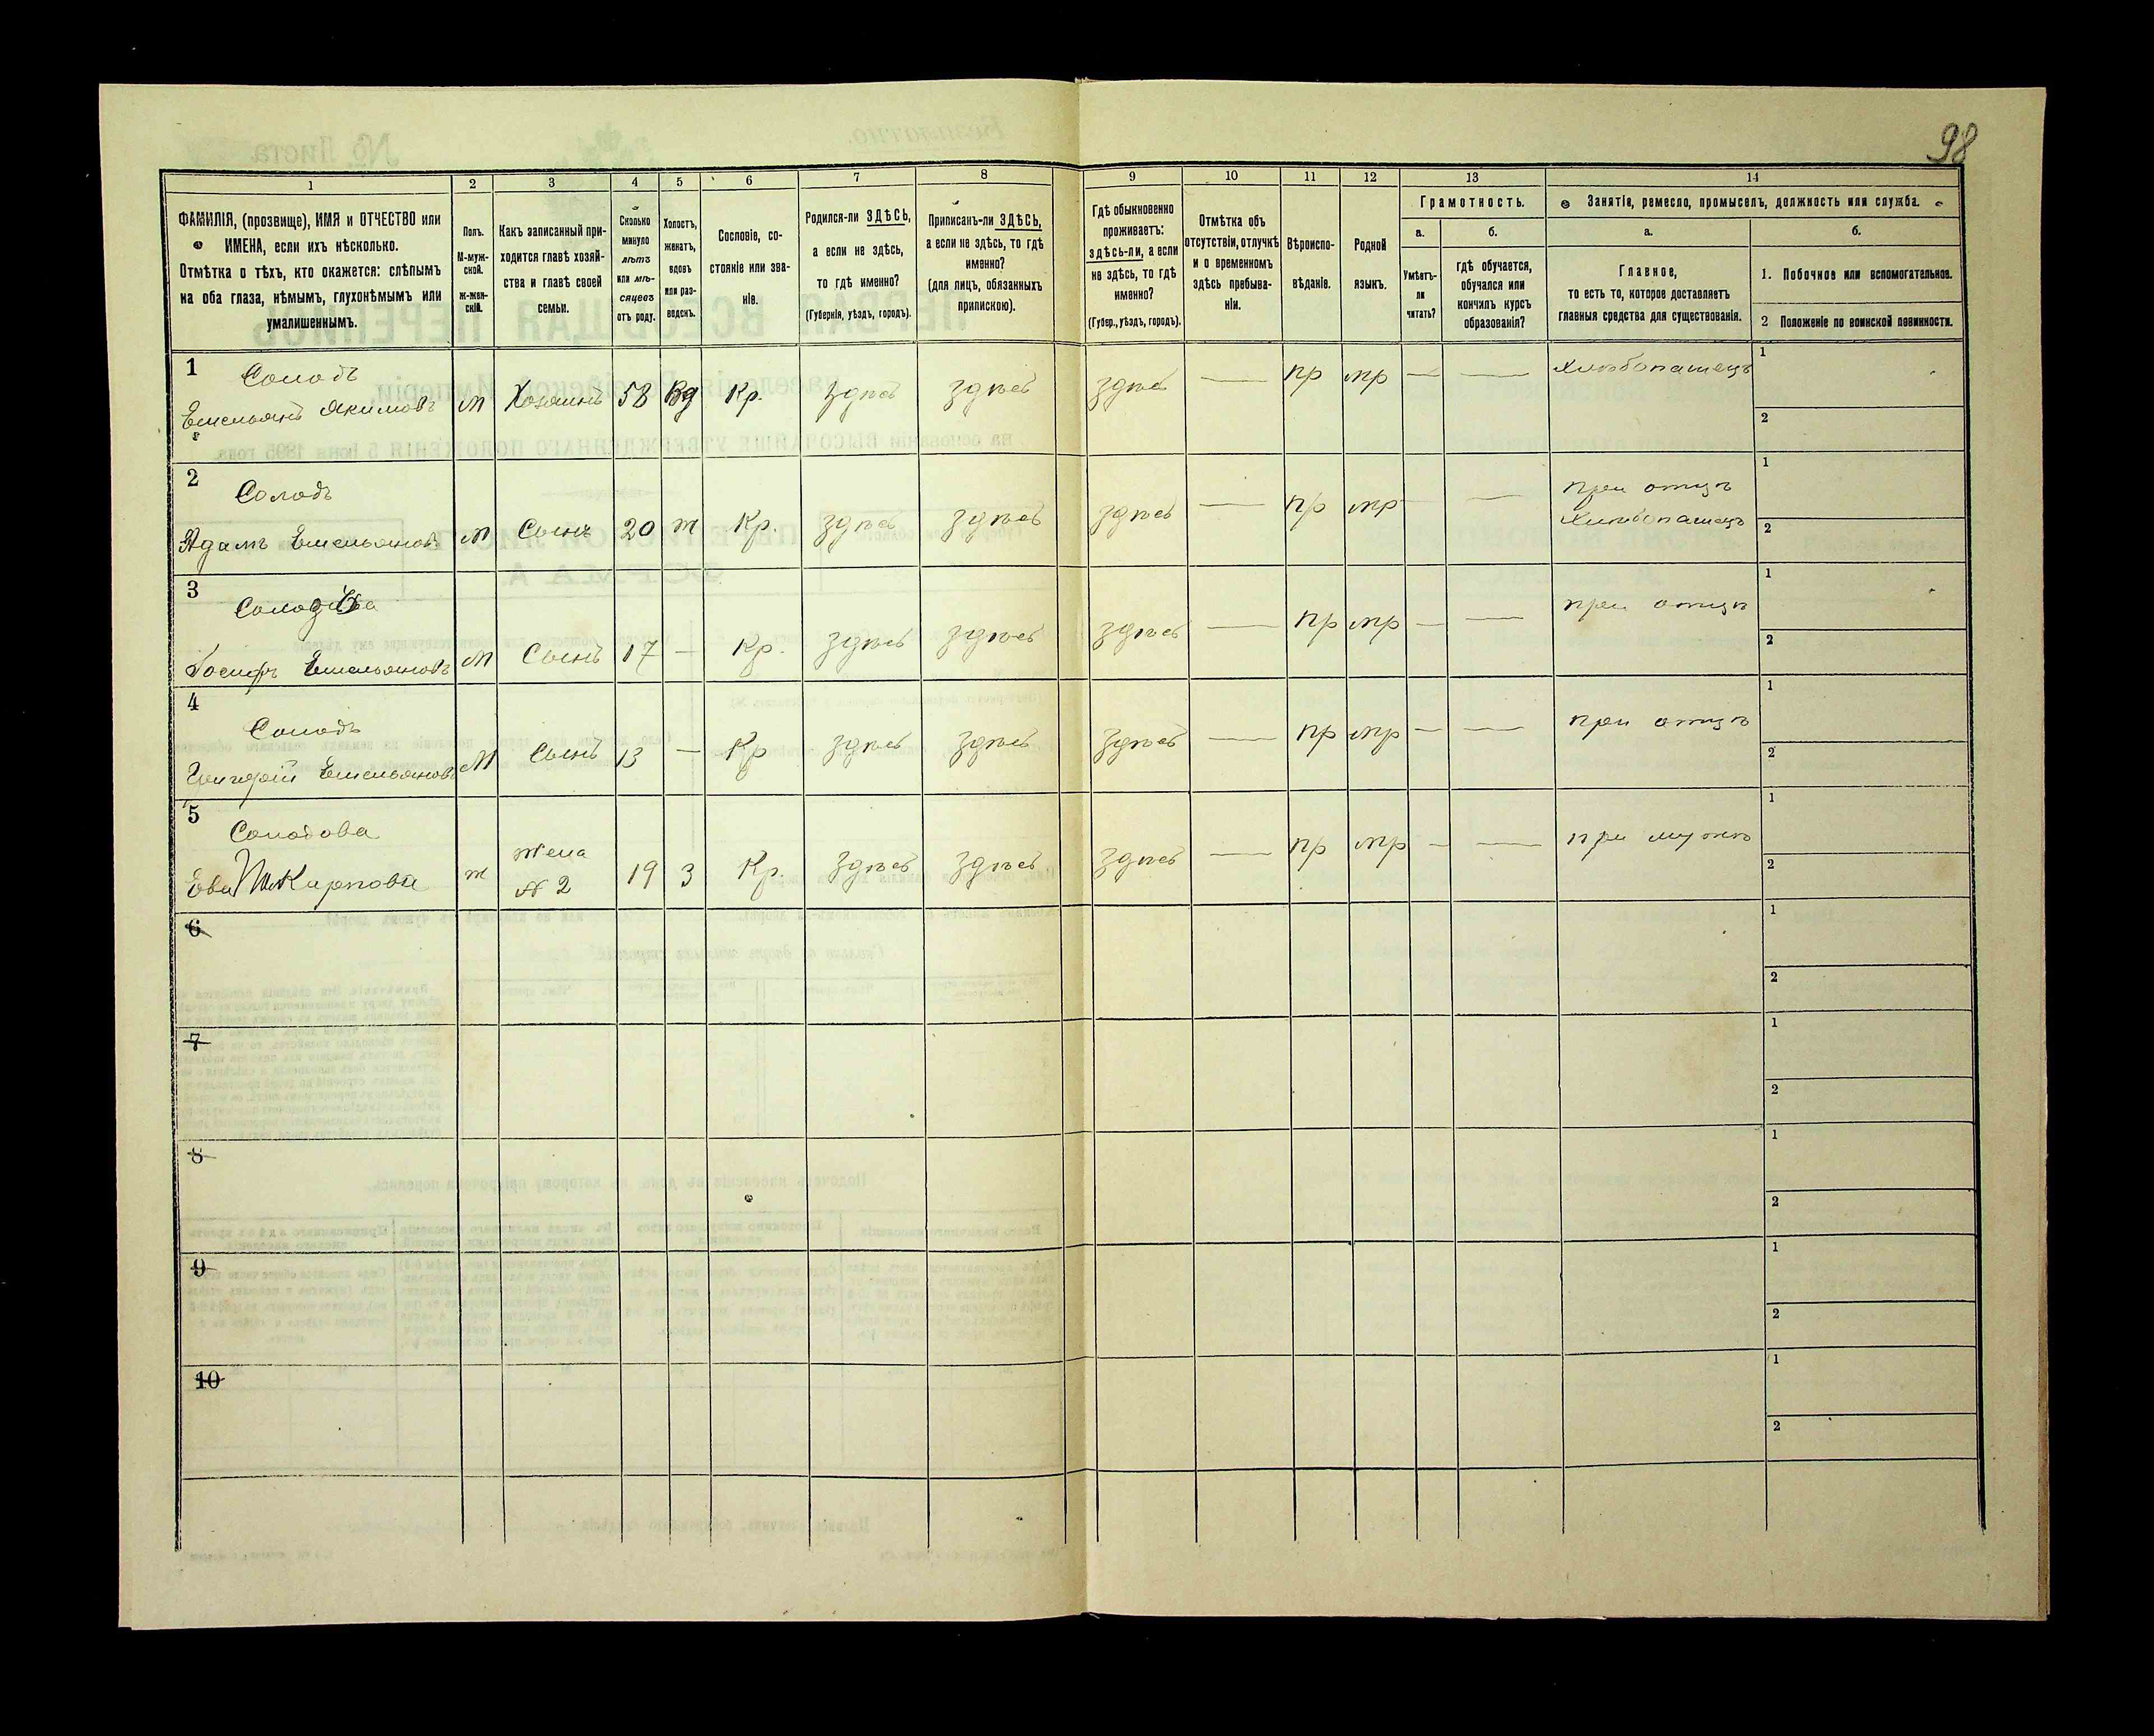 98
1
2
3
4
5
6
7
8
9
10
11
12
13
14
ФАМИЛІЯ, (прозвище), ИМЯ и ОТЧЕСТВО или
ИМЕНА, если ихъ нѣсколько.
Отмѣтка о тѣхъ, кто окажется: слѣпымъ
на оба глаза, нѣмымъ, глухонѣмымъ или
умалишеннымъ.
Полъ.
М-муж-
ской.
ж-жен-
скій.
Какъ записанный при-
ходится главѣ хозяй-
ства и главѣ своей
семьи.
Сколько
минуло
лѣтъ
или мѣ-
сяцевъ
отъ роду.
Холостъ,
женатъ,
вдовъ
или раз-
веденъ.
Сословіе, со-
стояніе или зва-
ніе.
Родился-ли ЗДѢСЬ,
а если не здѣсь,
то гдѣ именно?
(Губернія, уѣздъ, городъ).
Приписанъ-ли ЗДѢСЬ,
а если не здѣсь, то гдѣ
именно?
(для лицъ, обязанныхъ
припискою).
Гдѣ обыкновенно
проживаетъ:
здѣсь-ли, а если
не здѣсь, то гдѣ
именно?
(Губер., уѣздъ, городъ).
Отмѣтка объ
отсутствіи, отлучкѣ
и о временномъ
здѣсь пребыва-
ніи.
Вѣроиспо-
вѣданіе.
Родной
языкъ.
Грамотность.
а.
Умѣетъ-
ли
читать?
б.
гдѣ обучается,
обучался или
кончилъ курсъ
образованія?
Занятіе, ремесло, промыселъ, должность или служба.
а.
Главное,
то есть то, которое доставляетъ
главныя средства для существованія.
б.
1. Побочное или вспомогательное.
2 Положеніе по воинской повинности.
1
Солодъ
Емельянъ Якимовъ
м
Хозяинъ
58
Вд
Кр.
Здѣсь
Здѣсь
Здѣсь
—
пр
мр
—
—
Хлѣбопашецъ
1
2
2
Солодъ
Адамъ Емельяновъ
м
Сынъ
20
ж
Кр.
Здѣсь
Здѣсь
Здѣсь
—
пр
мр
—
при отцѣ
Хлѣбопашецъ
1
2
3
Іосифъ Емельяновъ
м
Сынъ
17
—
Кр.
Здѣсь
Здѣсь
Здѣсь
—
пр
мр
—
—
при отцѣ
1
2
4
Солодъ
Григорій Емельяновъ
м
Сынъ
13
—
Кр
Здѣсь
Здѣсь
Здѣсь
—
пр
мр
—
—
при отцѣ
1
2
5
Солодова
Ева Карпова
ж
жена
№ 2
19
З
Кр.
Здѣсь
Здѣсь
Здѣсь
—
пр
мр
—
—
при мужѣ
1
2
6
1
2
7
1
2
8
1
2
9
1
2
10
1
2